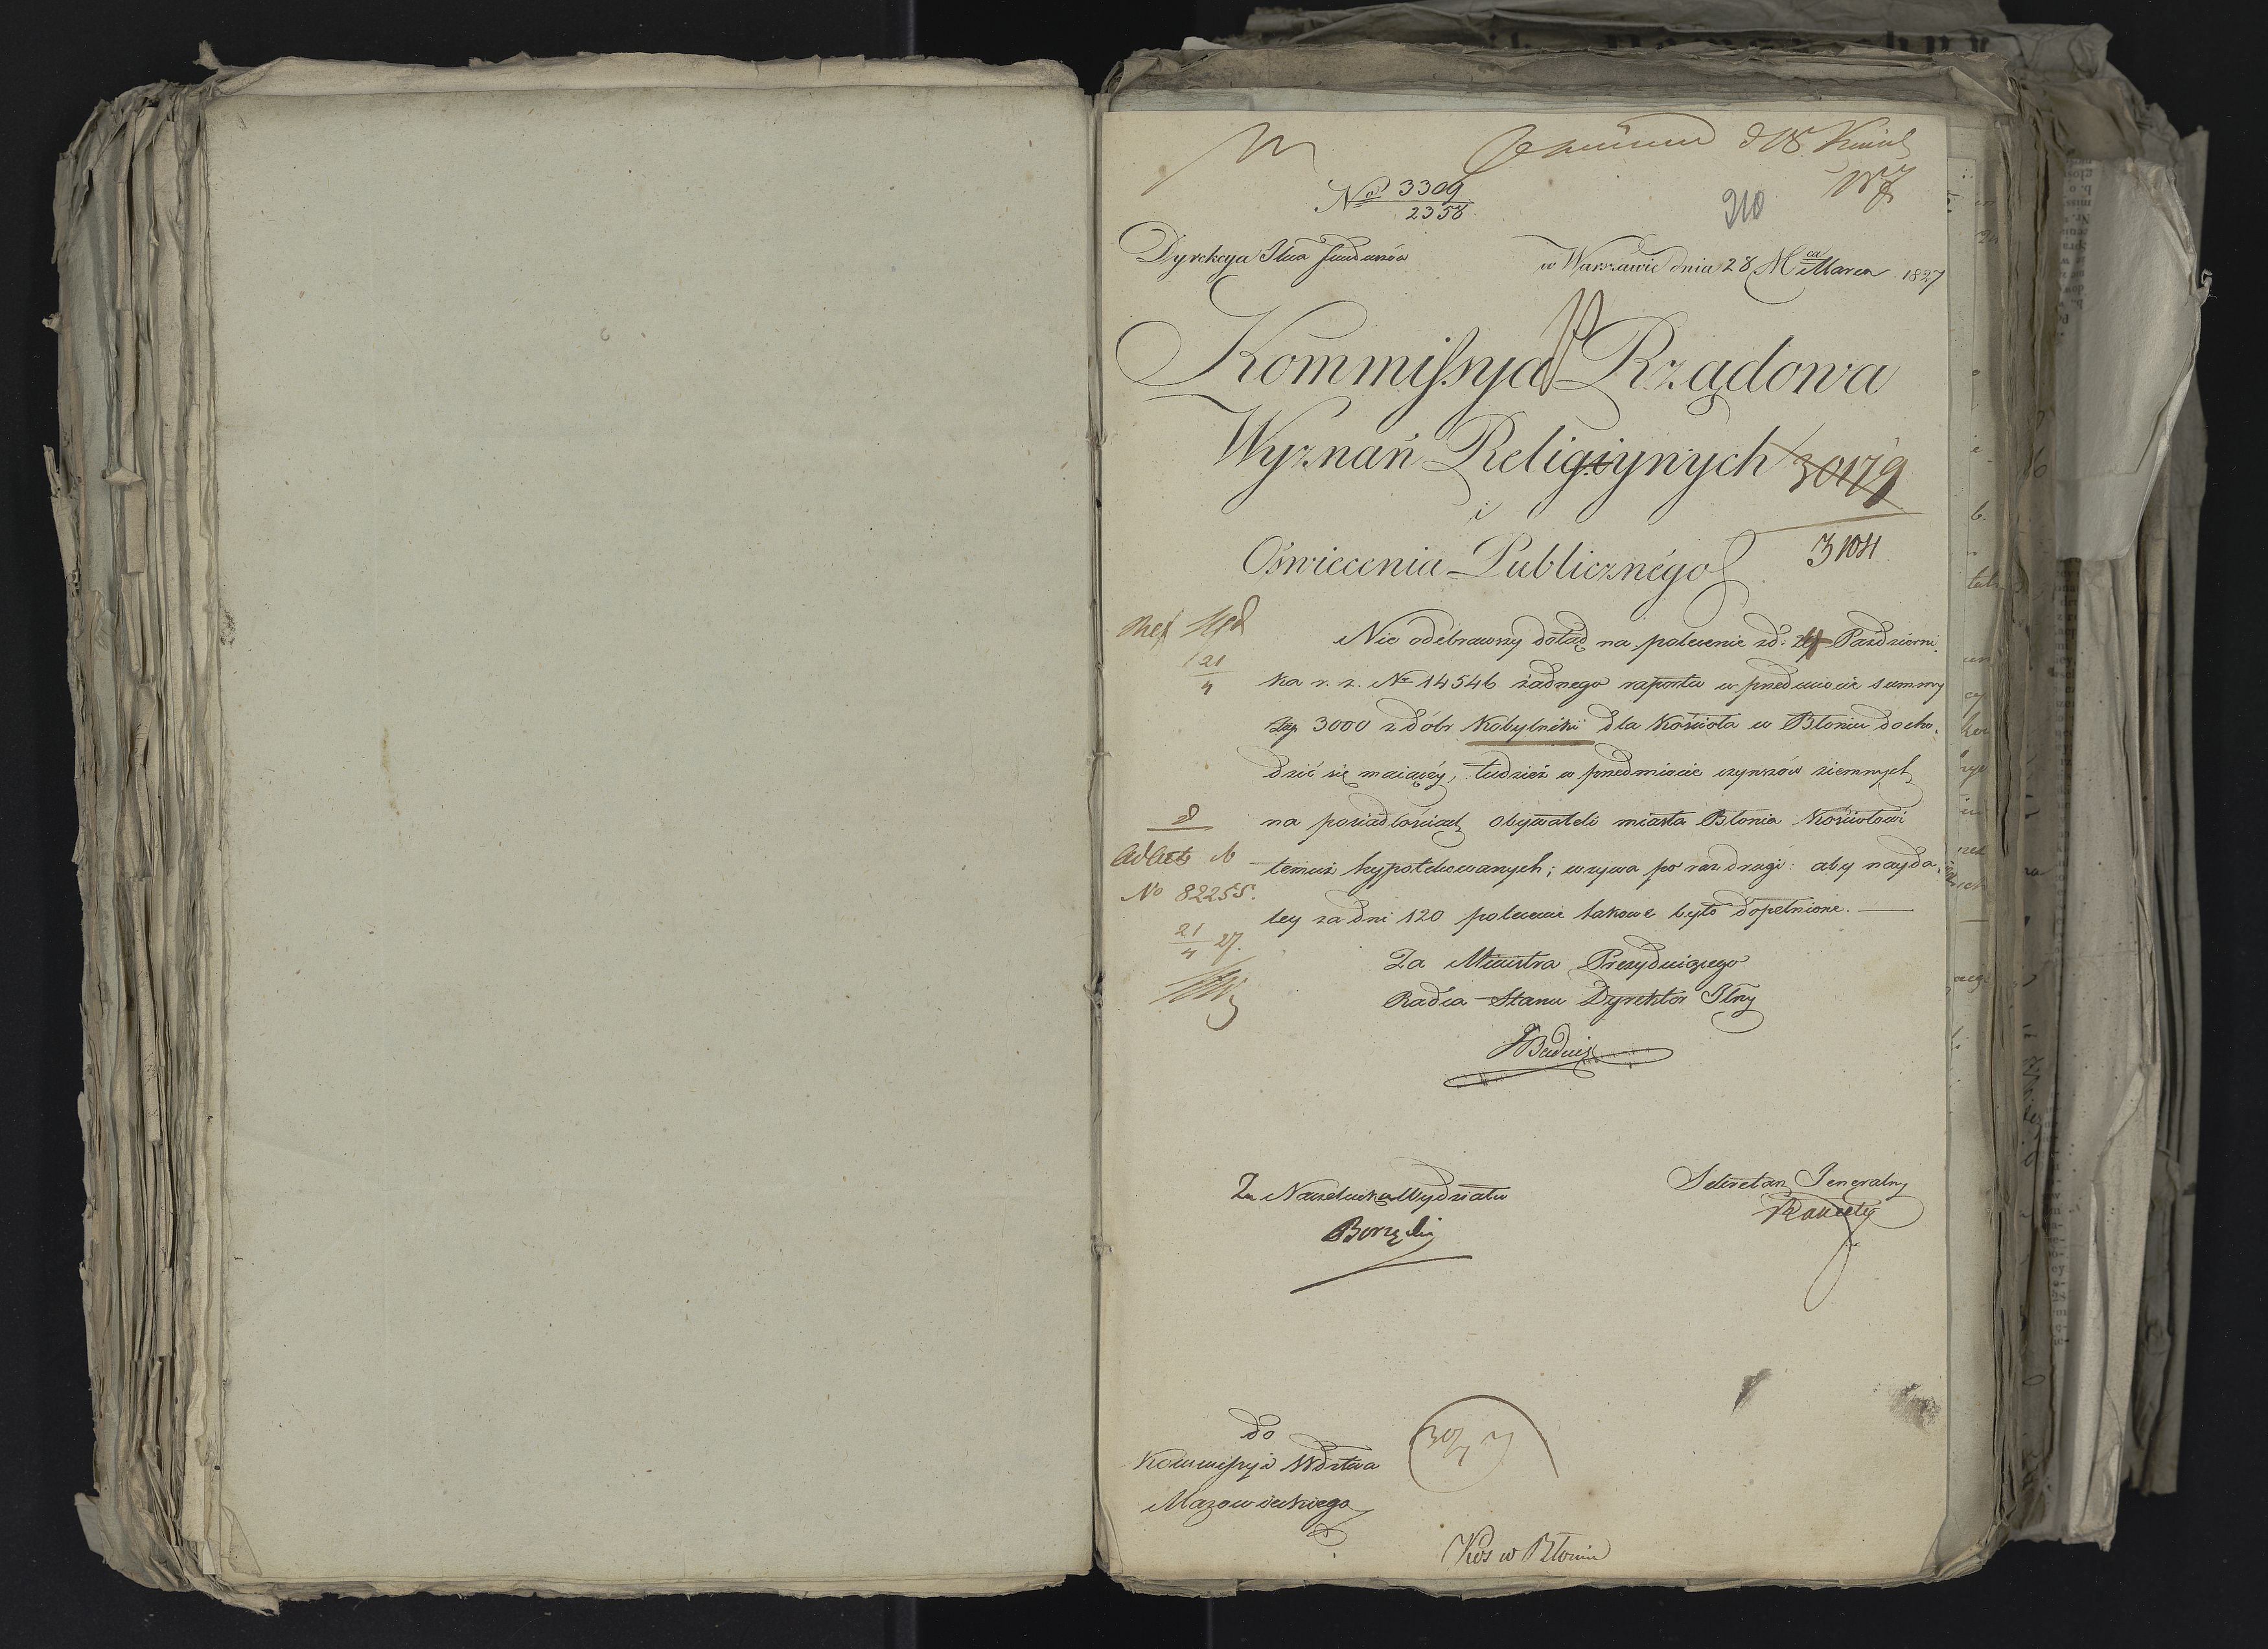 d 18 Kwiet
1827
No 3309
2358
210
Dyrekcya Jlna Funduszów
w Warszawie dnia 28 Mca Marca 1827
Kommissya Rządowa
Wyznań Religiynych
30179
i
Oświecenia Publicznégo
3104
Nie odebrawszy dotąd na polecenie zd: Pazdzierni
21
4
ka r. z. No 14546 żadnego raportu w przedmiocie summy
złp 3000 z dóbr Kobylniki dla Kościoła w Błoniu docho-
dzić się maiącéy, tudzież w przedmiocie czynszów ziemnych
na posiadłościach obywateli miasta Błonia Kościołowi
temuż hypotekowanych; wzywa po raz drugi: aby nayda-
No 82255.
ley za dni 120 polecenie takowe było dopełnione. —
21
4 27.
Za Ministra Prezyduiącego
Radca Stanu Dyrektor Jlny
Za Naczelnika Wydziału
Sekretarz Jeneralny
do
Kommissyi Wdztwa
Mazowieckiego
30/3
Kos w Błoniu